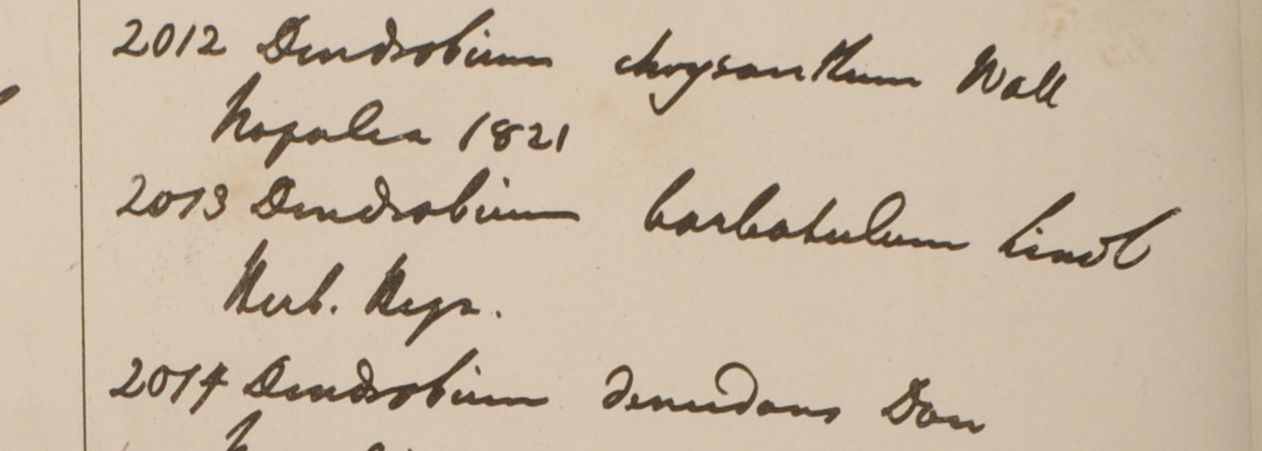 2012 Dendrobium chrysanthum Wall
Napalia 1821
2013 Dendrobium barbatulum Lindl
Herb. Heyn.
2014 Dendrobium denudans Don